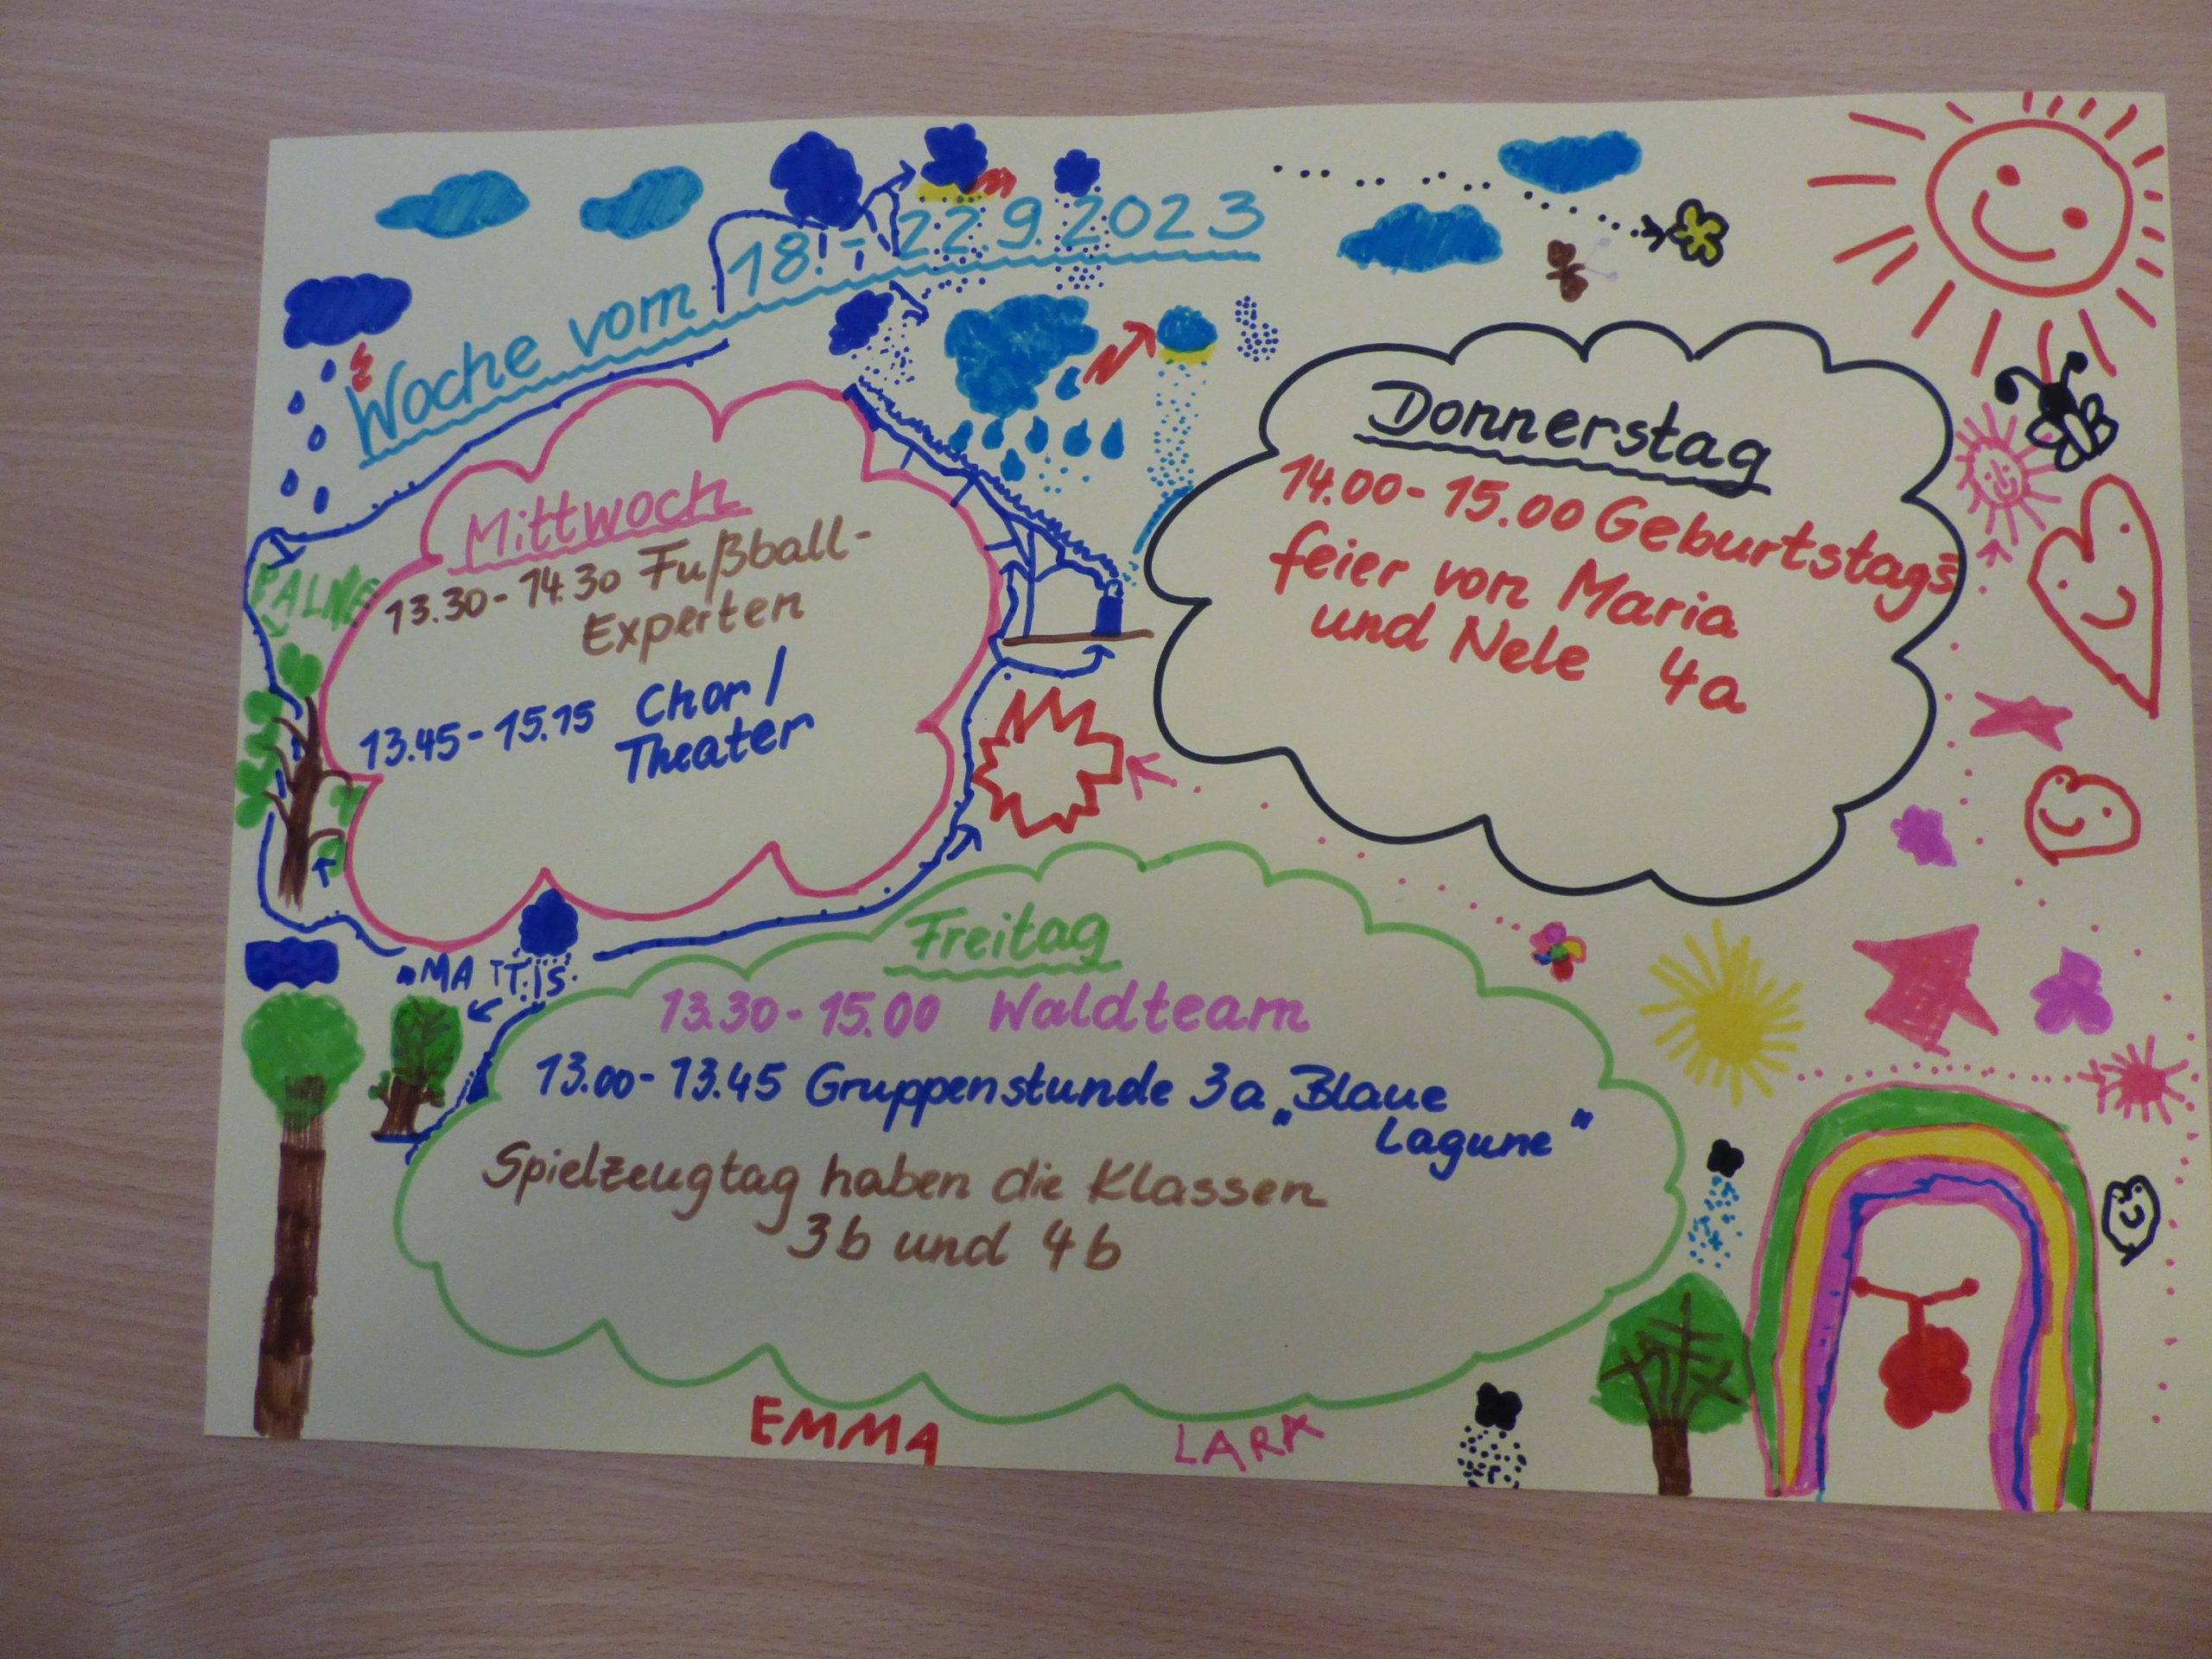 Woche vom 18. - 22.9.2023
Mittwoch
13.30 - 14.30 Fußball-
Experten
13.45 - 15.15 Chor /
Theater
Donnerstag
14.00 - 15.00 Geburtstags
feier von Maria
und Nele 4a
PALME
MATTIS
Freitag
13.30 - 15.00 Waldteam
13.00 - 13.45 Gruppenstunde 3a „Blaue
Lagune"
Spielzeugtag haben die Klassen
3b und 4b
EMMA
LARA